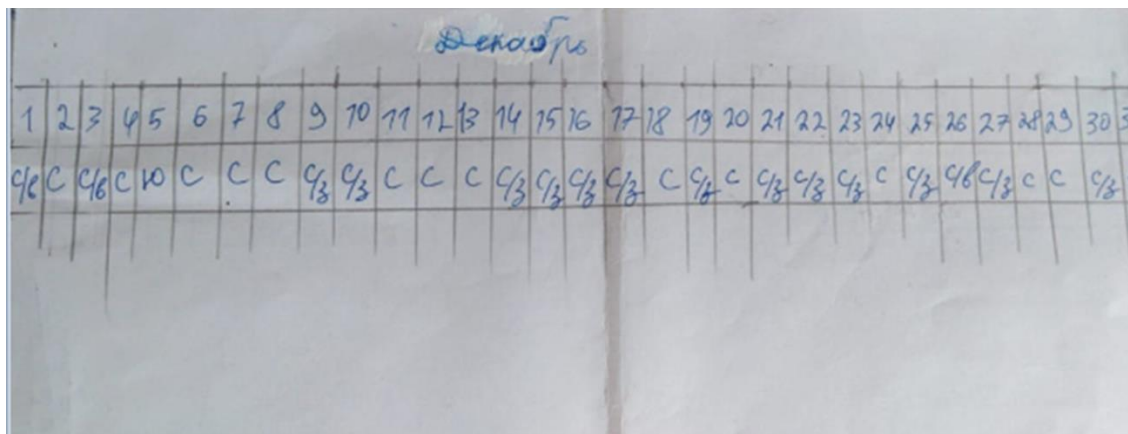 Декабрь
1 2 3 4 5 6 7 8 9 10 11 12 13 14 15 16 17 18 19 20 21 22 23 24 25 26 27 28 29 30 3
С/в С С/в С Ю С С С С/З С/З С С С С/З С/З С/З С/З С С/З С С/З С/З С/З С С/З С/В С/З С С С/З